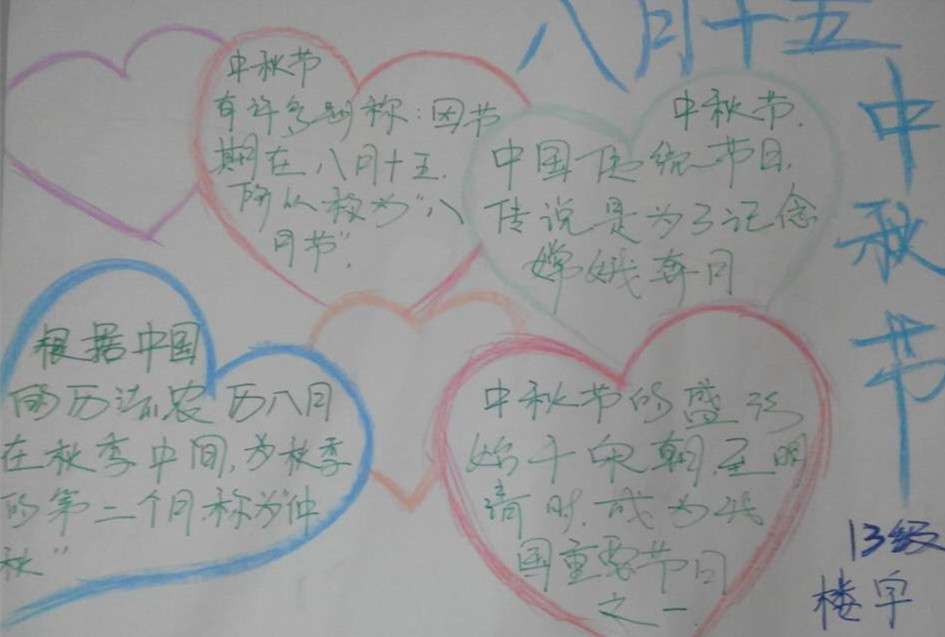 八月十五
中秋节
中秋节
有许多别称:因节
期在八月十五.
所以称为“八
月节”.
中秋节.
中国传统节日.
传说是为了记念
嫦娥奔月
根据中国
的历法,农历八月
在秋季中间,为秋季
的第二个月,称为“仲
秋”
中秋节的盛行
始于宋朝,至明
清时,成为我
国重要节日
之一
13级
楼宇